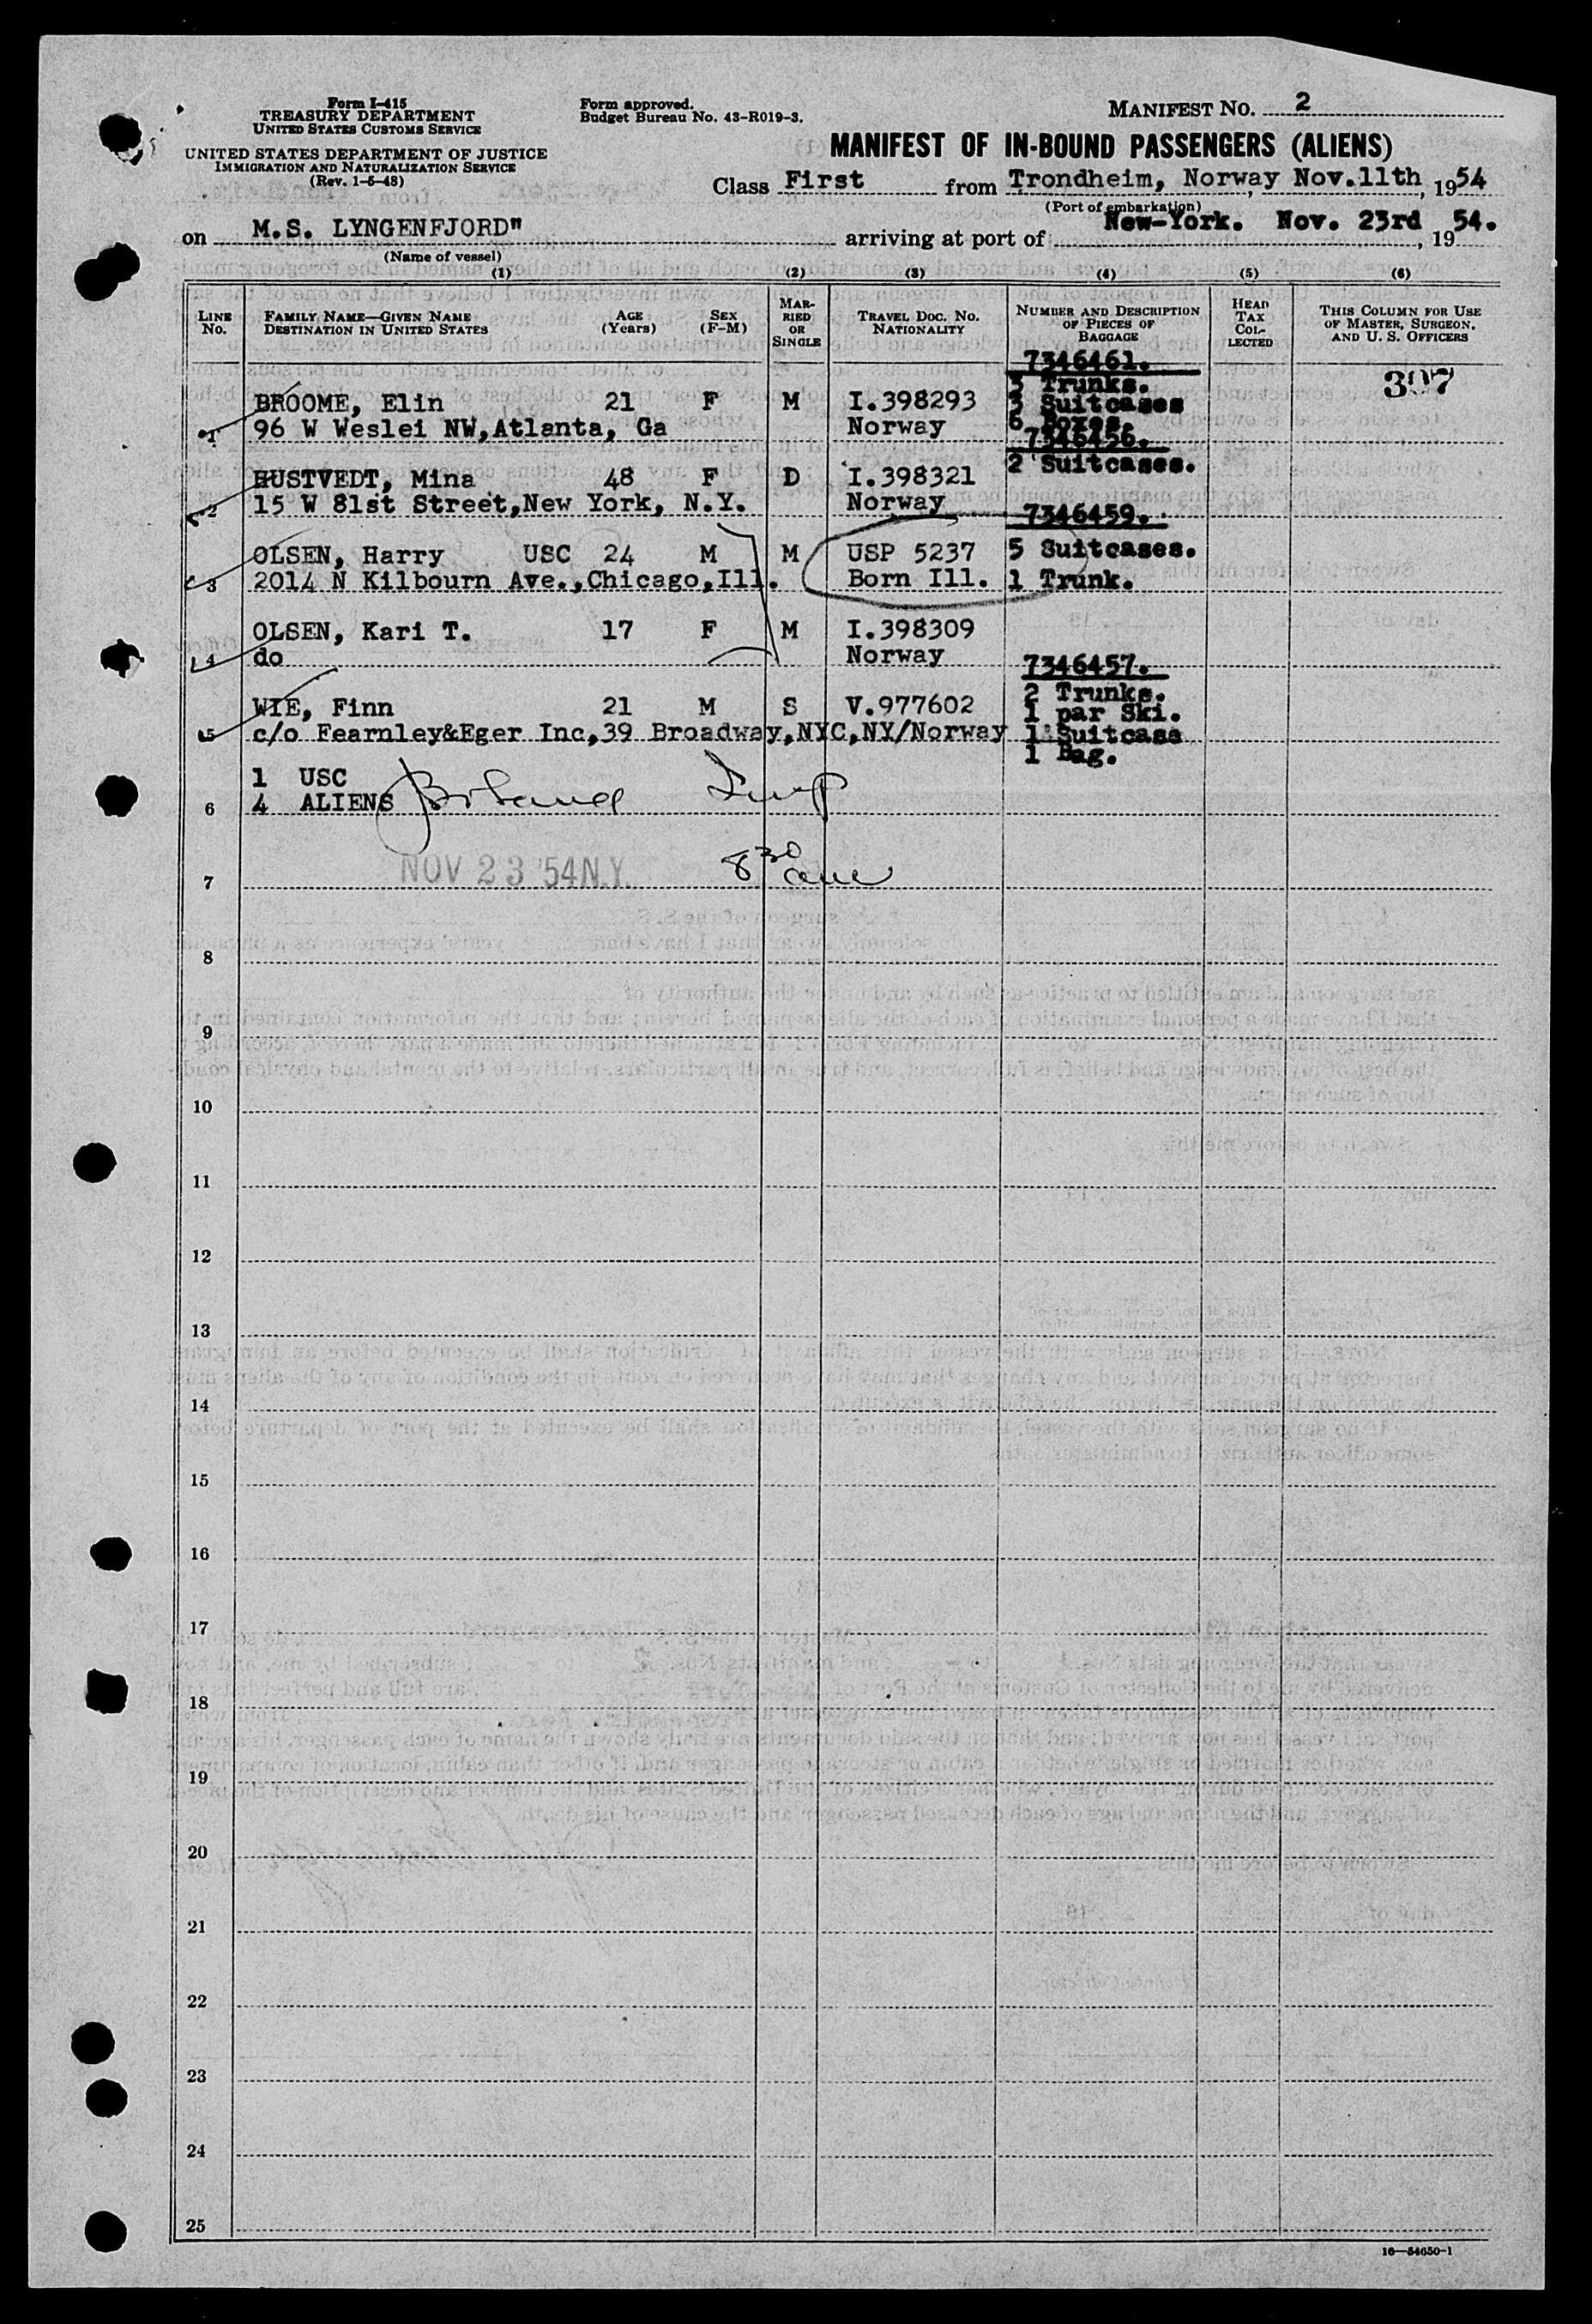 Form I-415
TREASURY DEPARTMENT
UNITED STATES CUSTOMS SERVICE
UNITED STATES DEPARTMENT OF JUSTICE
IMMIGRATION AND NATURALIZATION SERVICE
(Rev. 1-5-48)
Form approved.
Budget Bureau No. 43-R019-3.
MANIFEST No. 2
MANIFEST OF IN-BOUND PASSENGERS (ALIENS)
Class First from Trondheim, Norway Nov.11th, 1954
(Port of embarkation)
on M.S. LYNGENFJORD" arriving at port of New-York. Nov. 23rd, 1954.
(Name of vessel)
(1) (2) (3) (4) (5) (6)
LINE No. FAMILY NAME—GIVEN NAME DESTINATION IN UNITED STATES AGE (Years) SEX (F-M) MARRIED OR SINGLE TRAVEL DOC. NO. NATIONALITY NUMBER AND DESCRIPTION OF PIECES OF BAGGAGE HEAD TAX COLLECTED THIS COLUMN FOR USE OF MASTER, SURGEON, AND U. S. OFFICERS
7346461.
3 Trunks. 397
BROOME, Elin 21 F M I.398293 3 Suitcases
1 96 W Weslei NW,Atlanta, Ga Norway 6 Boxes.
7346456.
HUSTVEDT, Mina 48 F D I.398321 2 Suitcases.
2 15 W 81st Street,New York, N.Y. Norway
7346459.
OLSEN, Harry USC 24 M M USP 5237 5 Suitcases.
3 2014 N Kilbourn Ave.,Chicago,Ill. Born Ill. 1 Trunk.
OLSEN, Kari T. 17 F M I.398309
4 do Norway 7346457.
2 Trunks.
WIE, Finn 21 M S V.977602 1 par Ski.
5 c/o Fearnley&Eger Inc,39 Broadway,NYC,NY/Norway 1 Suitcase
1 Bag.
1 USC
6 4 ALIENS
7 NOV 23 '54 N.Y. 8 30 am
8
9
10
11
12
13
14
15
16
17
18
19
20
21
22
23
24
25
16—54650-1